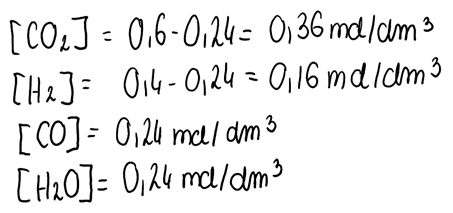 [CO₂] = 0,6-0,24= 0,36 mol/dm³
[H₂]= 0,4-0,24 = 0,16 mol/dm³
[CO]= 0,24 mol/dm³
[H₂O]= 0,24 mol/dm³